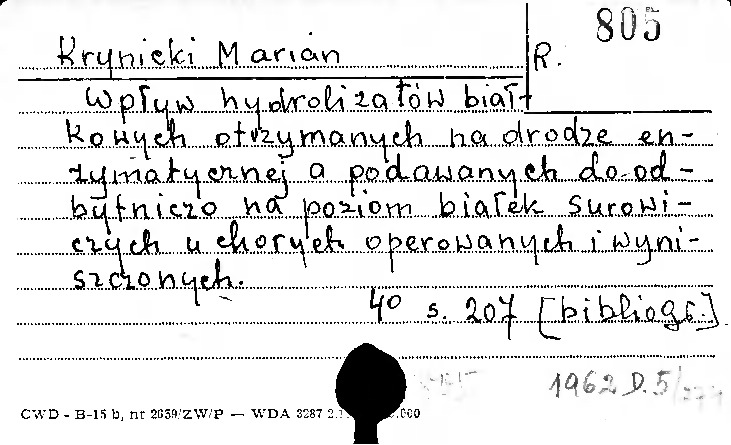 805
Krynicki Marian R.
Wpływ hydrolizatów biał-
kowych otrzymanych na drodze en-
zymatycznej a podawanych do od-
bytniczo na poziom białek surowi-
czych u chorych operowanych i wyni-
szczonych.
4° s. 207 [bibliogr.]
1962 D.5/
CWD - B-15 b, nr 2639/ZW/P — WDA 3287